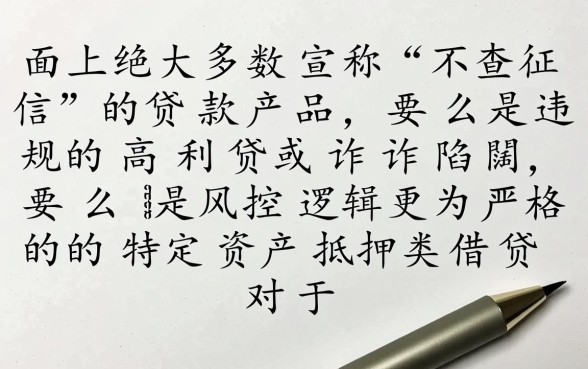 面上绝大多数宣称“不查征
信”的贷款产品，要么是违
规的高利贷或诈诈陷闊，
要么是风控逻辑更为严格
的的特定资产抵押类借贷
对于